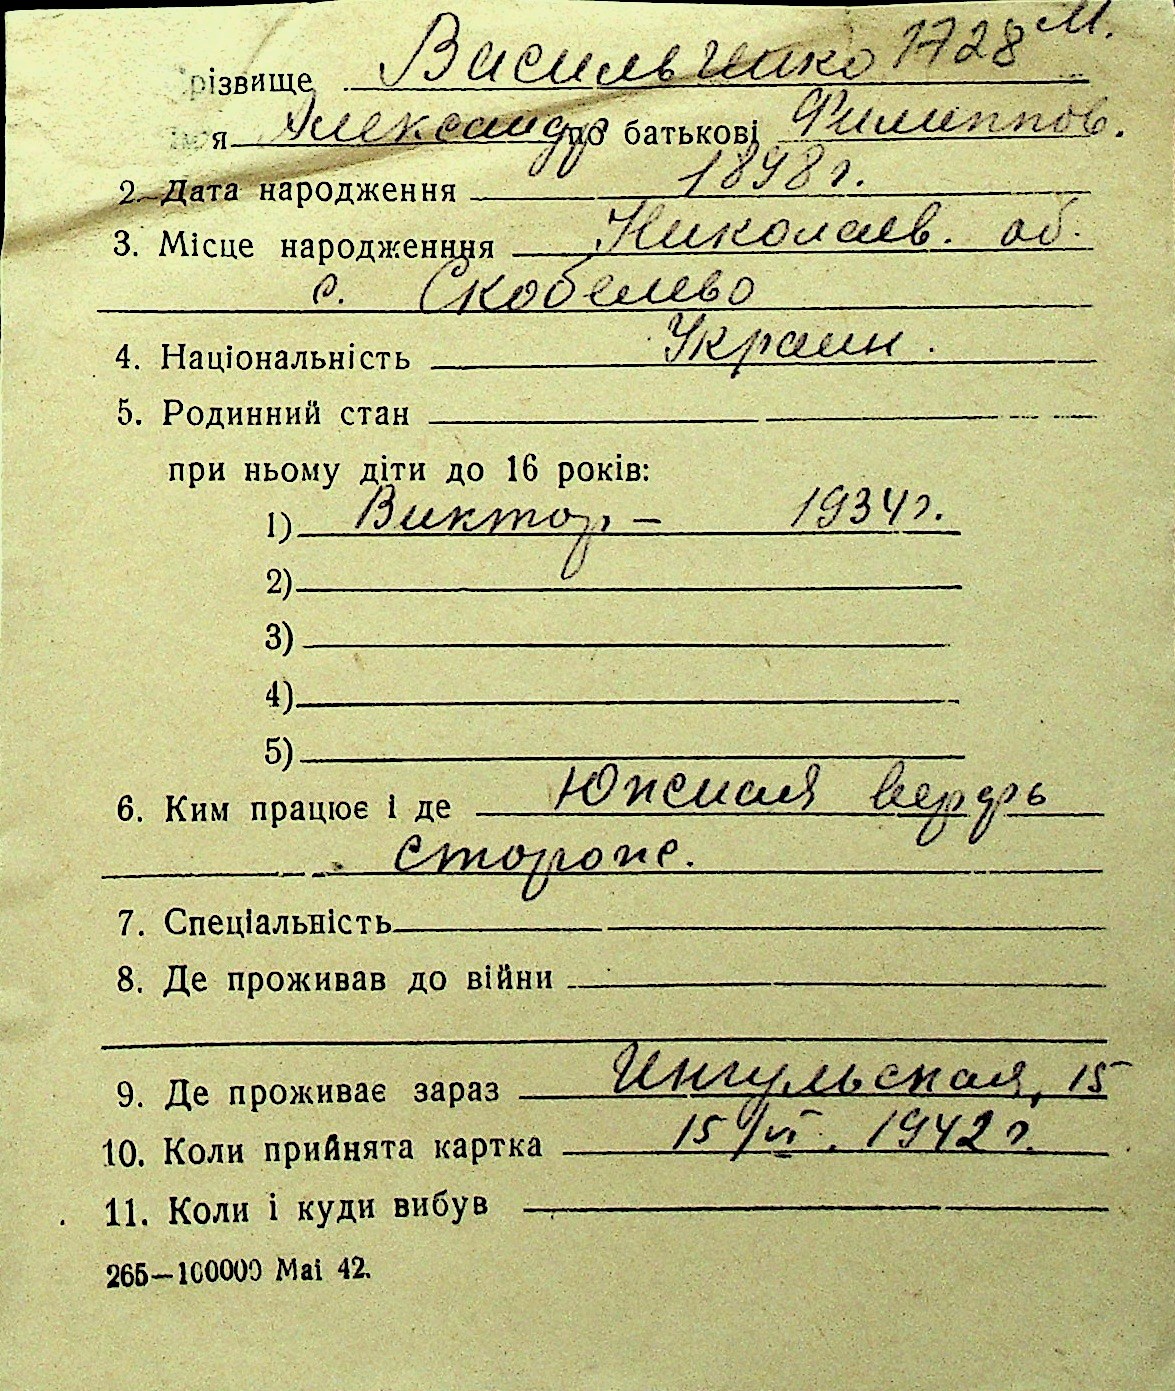 різвище Васильченко 1728 м.
ім'я Александр по батькові Филиппов.
2. Дата народження 1898 г.
3. Місце народженння Николаев. об.
с. Скобелево
4. Національність Украин.
5. Родинний стан
при ньому діти до 16 років:
1) Виктор – 1934 г.
2)
3)
4)
5)
6. Ким працює і де Южная верфь
сторож.
7. Спеціальність
8. Де проживав до війни
9. Де проживає зараз Ингульская, 15
10. Коли прийнята картка 15/VI. 1942 г.
11. Коли і куди вибув
265—100000 Mai 42.